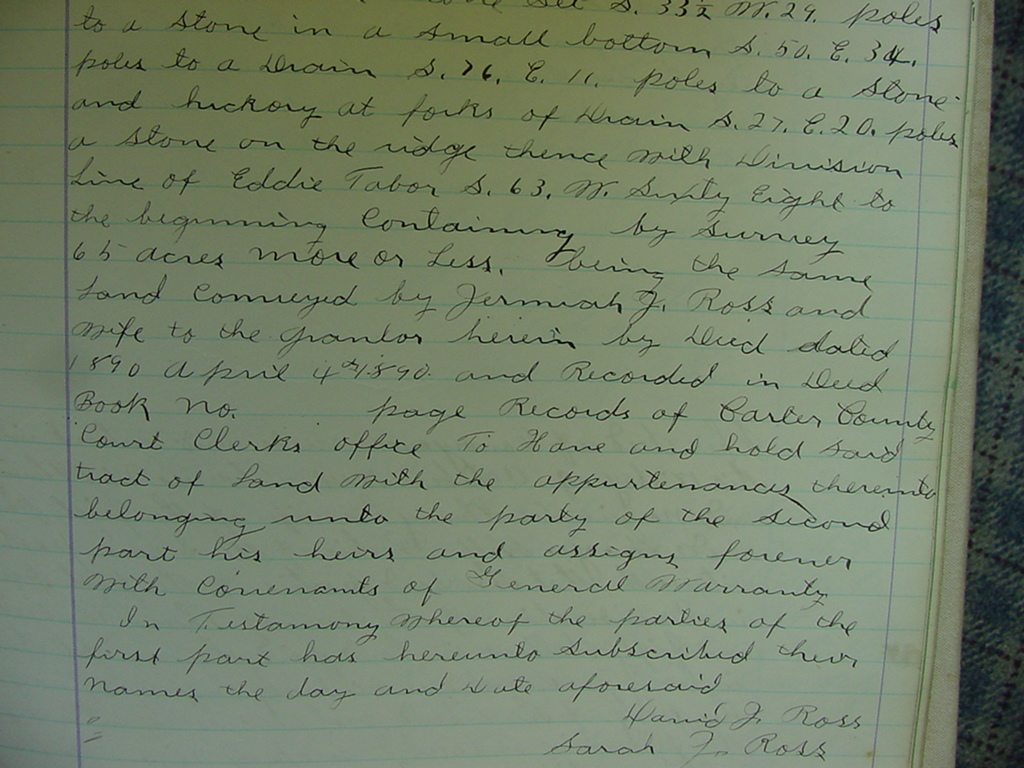 S. 33½ W. 29. poles
to a Stone in a small bottom S. 50. E. 34.
poles to a Drain S. 76. E. 11. poles to a Stone
and hickory at forks of Drain S. 27. E. 20. poles
a Stone on the ridge thence with Division
Line of Eddie Tabor S. 63. W. Sixty Eight to
the beginning Containing by Survey
65 acres more or Less. being the same
Land Conveyed by Jermiah J. Ross and
wife to the Grantor herein by Deed dated
1890 April 4th 1890 and Recorded in Deed
Book No. page Records of Carter County
Court Clerks office To Have and hold said
tract of Land with the appurtenances thereunto
belonging unto the party of the second
part his heirs and assigns forever
With Covenants of General Warranty
In Testamony Whereof the parties of the
first part has hereunto Subscribed their
Names the day and Date aforesaid
David J. Ross
Sarah J. Ross